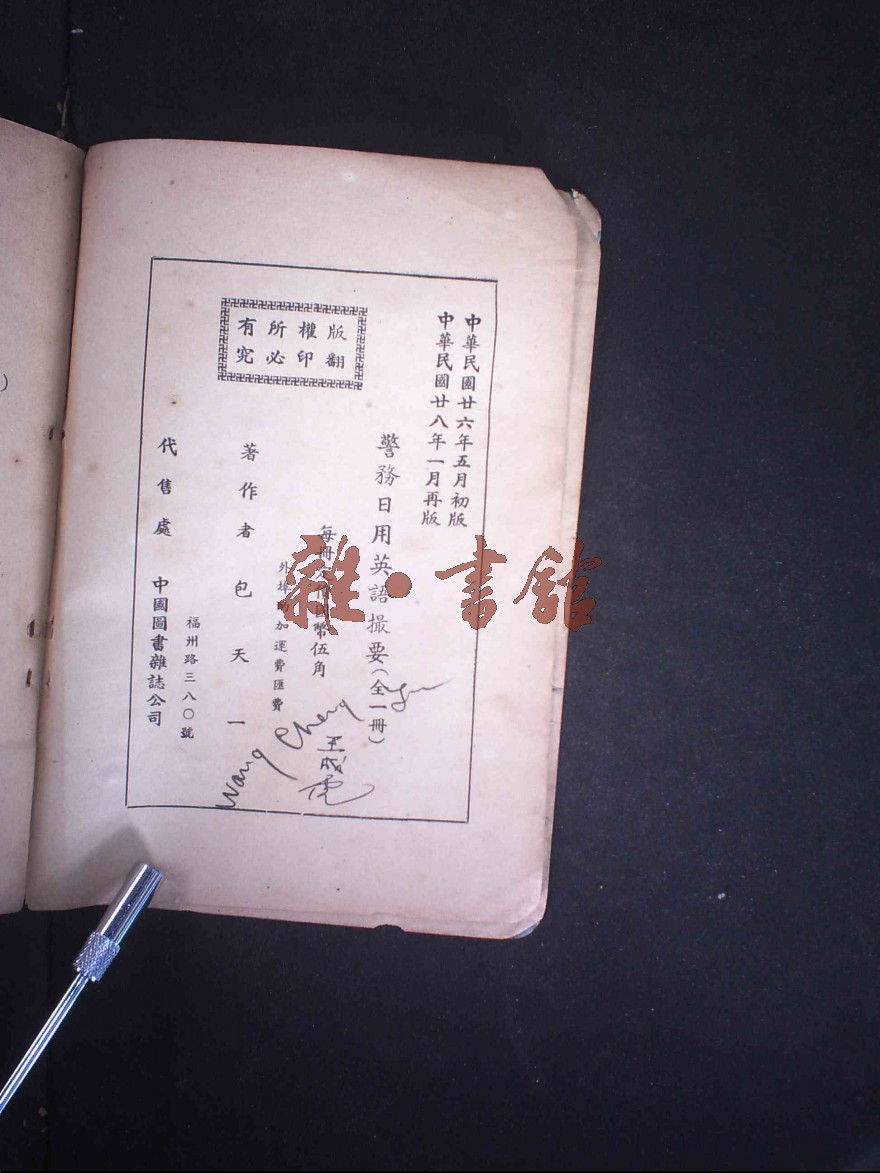 中華民國廿六年五月初版
中華民國廿八年一月再版
警務日用英語撮要(全一冊)
每冊定價國幣伍角
外埠酌加運費匯費
版權所有
翻印必究
著作者包天一
福州路三八〇號
代售處 中國圖書雜誌公司
Wang Cheng
王成虎
雜·書館